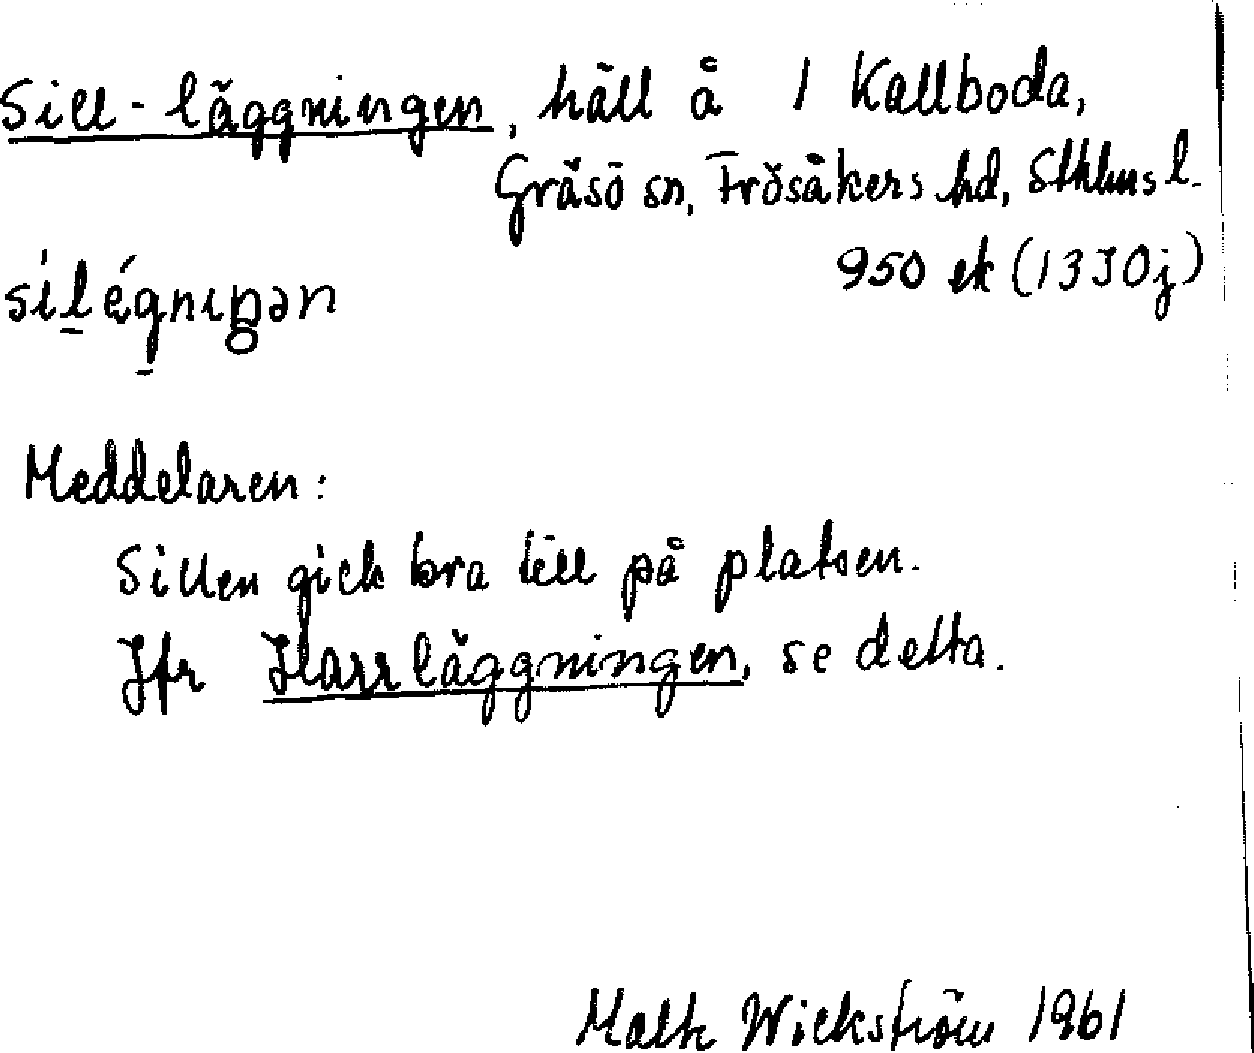 Sill-läggningen, häll å 1 Kallboda,
Gräsö sn, Frösåkers hd, Sthlms l.
950 ek (13 J 0 j)
Meddelaren:
Sillen gick bra till på platsen.
Jfr Harrläggningen, se detta.
Wickström 1961